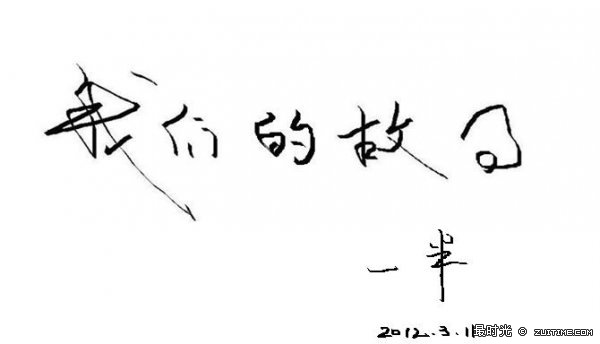 我们的故
一半
2012.3.1
最时光 © ZUITIME.COM